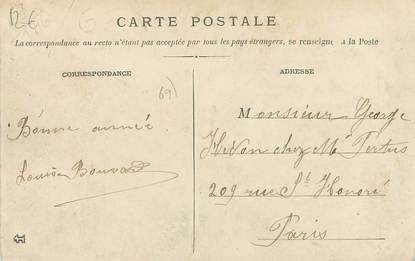 12€
CARTE POSTALE
La correspondance au recto n'étant pas acceptée par tous les pays étrangers, se renseigner à la Poste
CORRESPONDANCE
ADRESSE
69)
Bonne année
Louise Bouvard
Monsieur George
chez Me Pertus
209 rue St Honoré
Paris